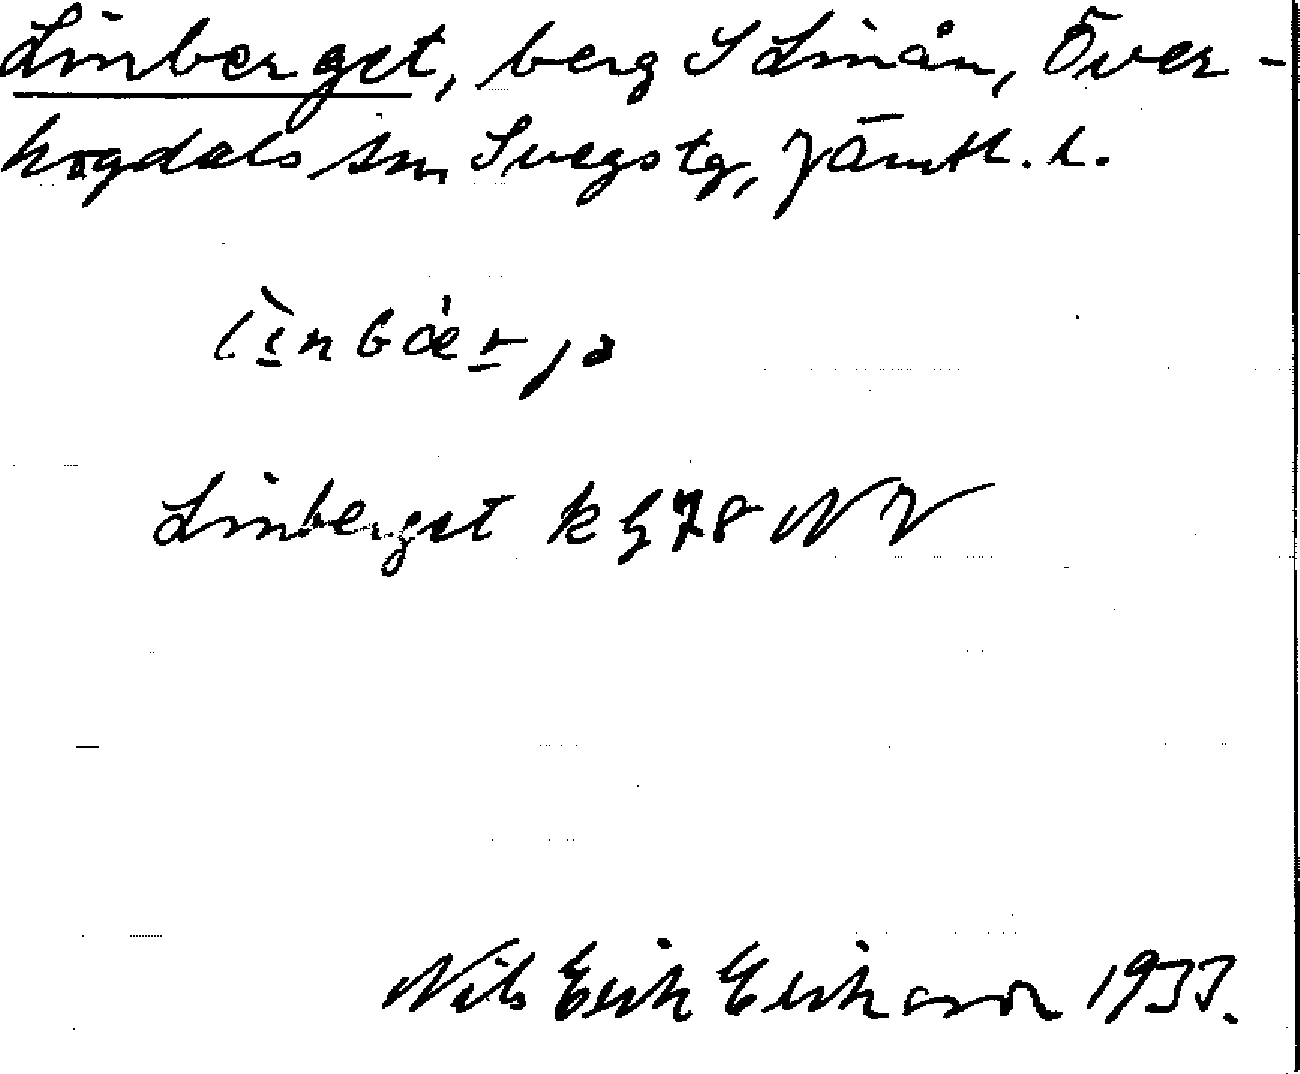 Linberget, berg S Linån, Över-
hogdals sn, Svegs tg, Jämtl. l.
Linberget k bl 78 NV
Nils Erik Eriksson 1933.